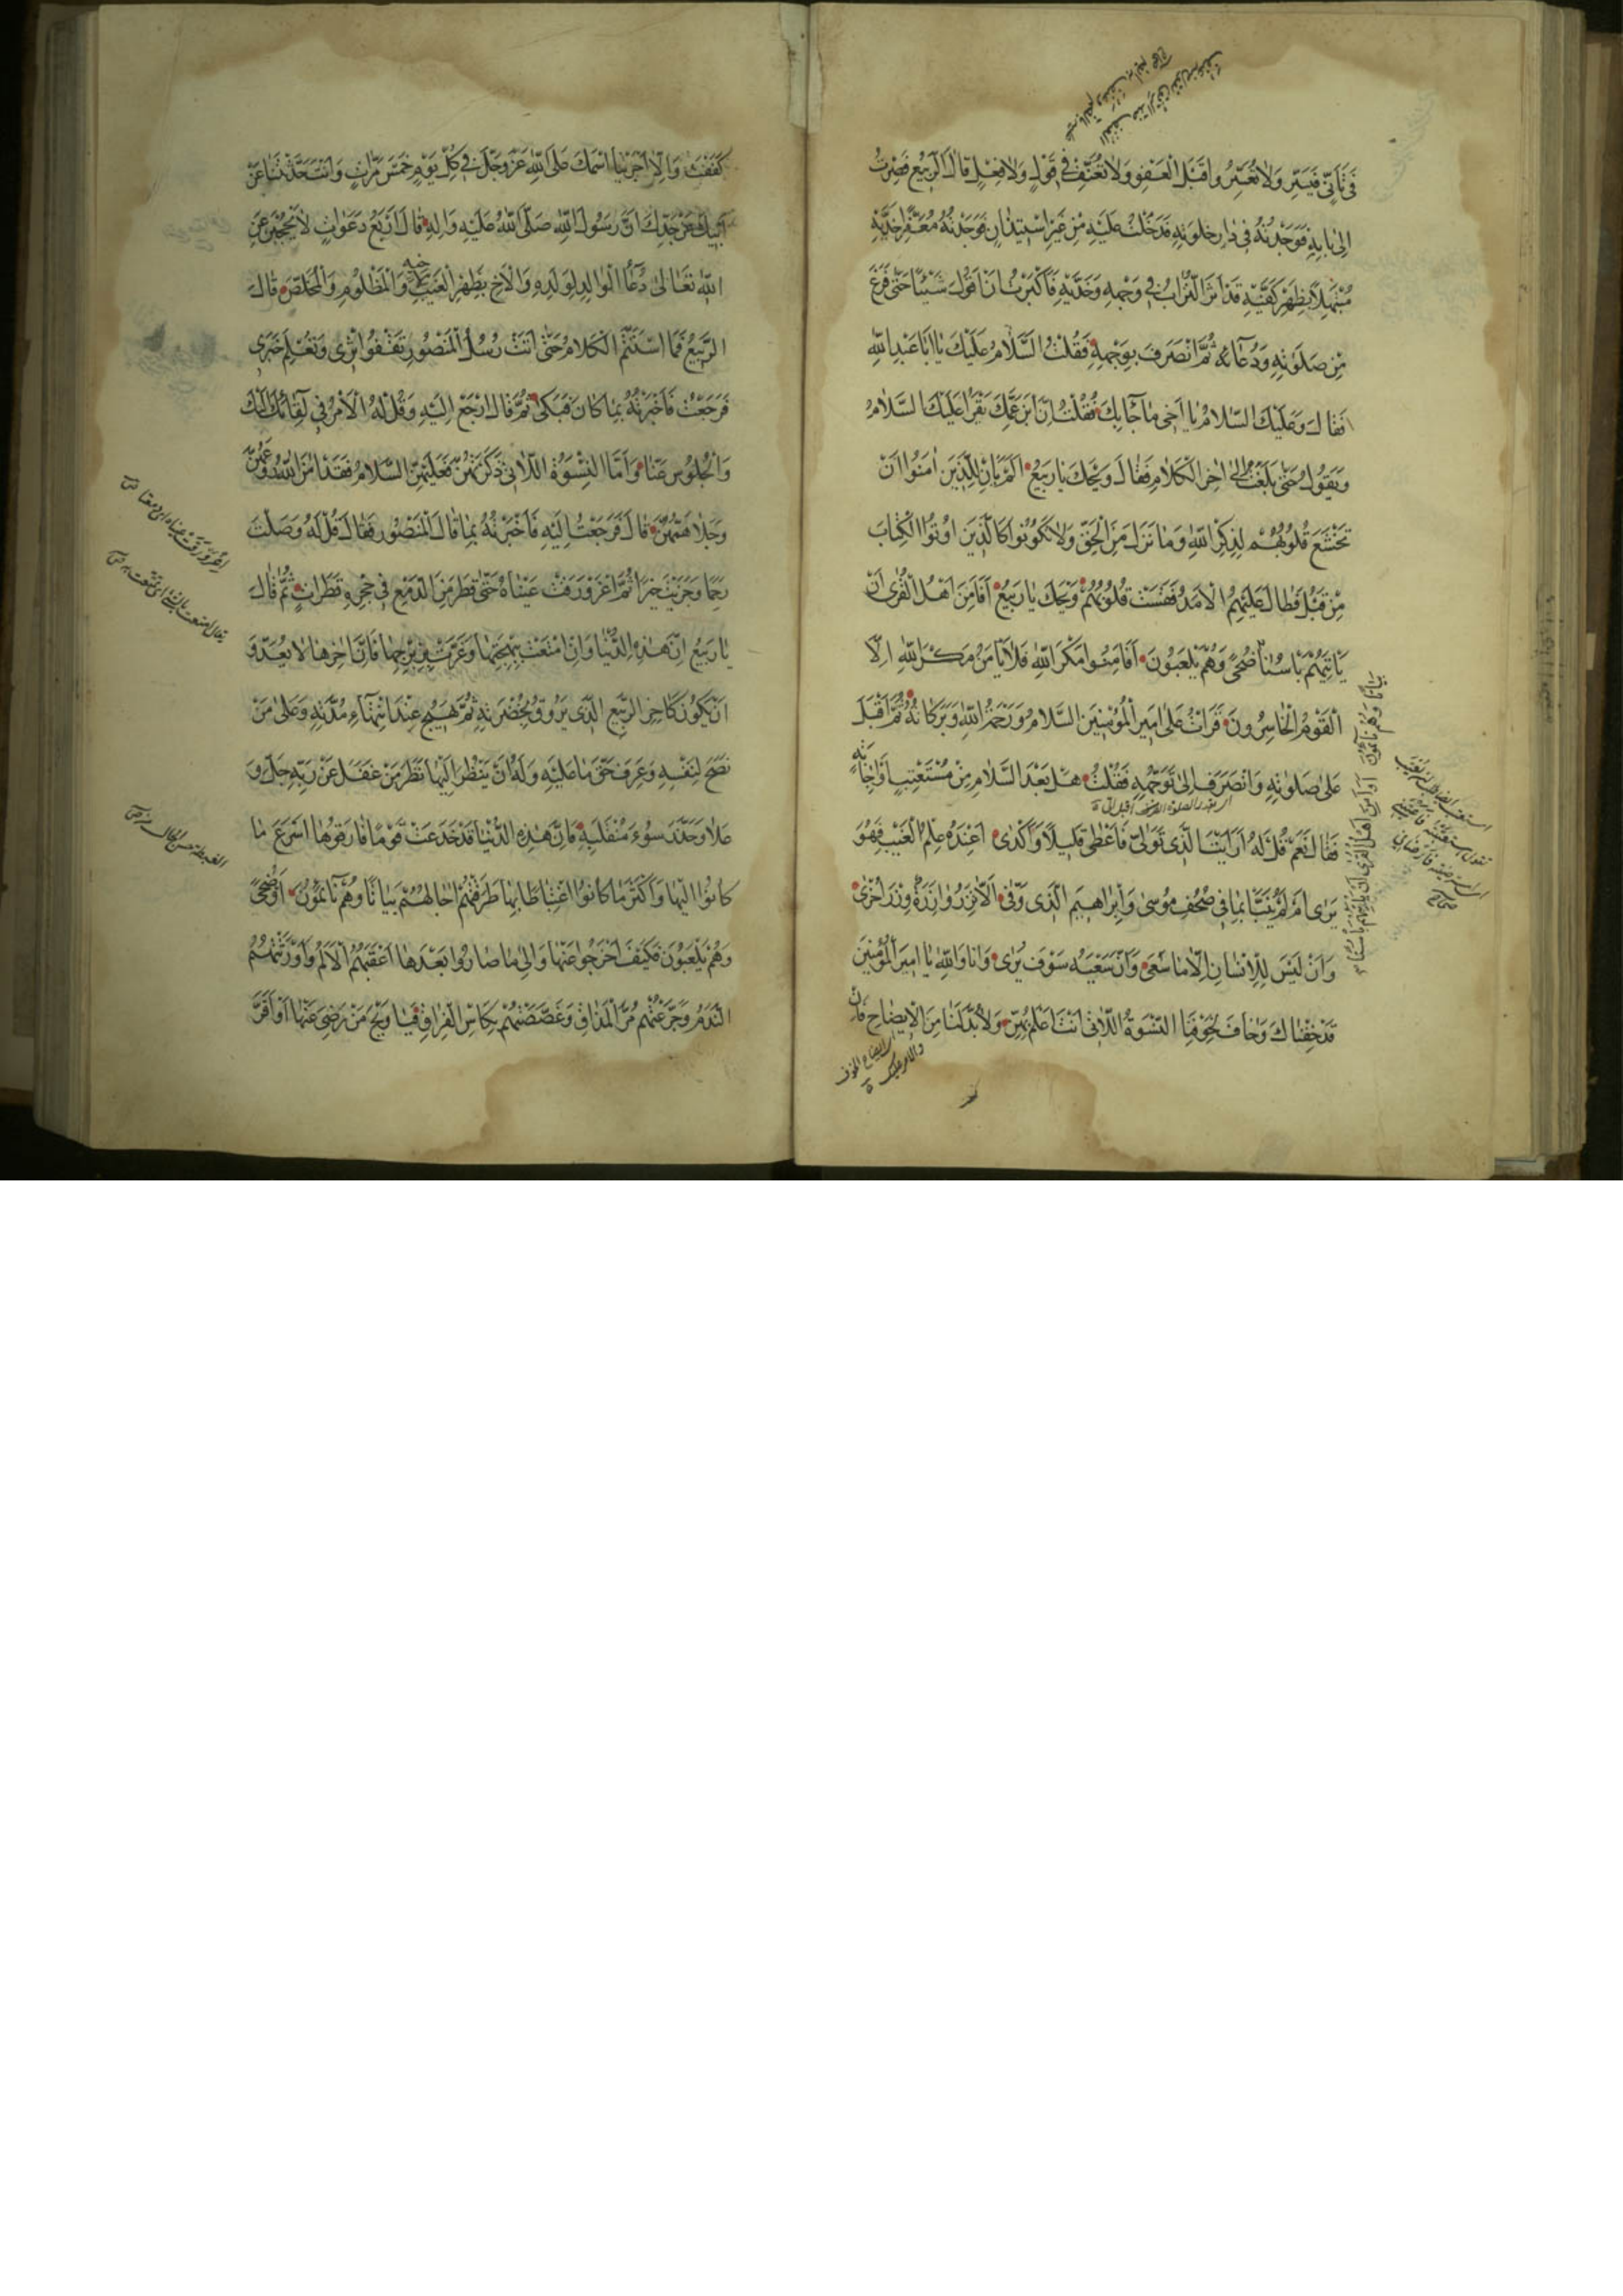 فی تأنّی فیسّر ولا تعسّر واقبل العفو ولا تعنف فی قول ولا فعل قال الربیع فصرت
الی بابه فوجدته فی دار خلوته فدخلت علیه من غیر استیذان فوجدته معفّرا خدّیه
مبتهلا بظهر کفّیه قد اثر التراب فی وجهه وخدّیه فاکبرت ان اقول شیئا حتی فرغ
من صلوته ودعائه ثمّ انصرف بوجهه فقلت السّلام علیک یا ابا عبد الله
فقال وعلیک السّلام یا اخی ما جاء بک فقلت انّ ابن عمّک یقرا علیک السّلام
ویقول حتی بلغت الی اخر الکلام فقال ویحک یا ربیع الم یان للّذین امنوا ان
تخشع قلوبهم لذکر الله وما نزل من الحقّ ولا یکونوا کالّذین اوتوا الکتاب
من قبل فطال علیهم الامد فقست قلوبهم ویحک یا ربیع أفأمن اهل القری ان
یاتیهم باسنا ضحیً وهم یلعبون أفأمنوا مکر الله فلا یامن مکر الله الّا
بیاتًا وهم نائمون أوأمن اهل القری ان یاتیهم بأسنا
القوم الخاسرون قرات علی امیر المؤمنین السّلام ورحمة الله وبرکاته ثمّ اقبل
علی صلوته وانصرف الی توجّهه فقلت هل بعد السّلام من مستعتب او اجابةٍ
فقال نعم قل له ارایت الّذی تولّی واعطی قلیلًا واکدی اعنده علم الغیب فهو
یری ام لم ینبّا بما فی صحف موسی وابراهیم الّذی وفّی الّا تزر وازرة وزر اخری
وان لیس للانسان الّا ما سعی وانّ سعیه سوف یری وانا والله یا امیر المؤمنین
قد خفناک وخاف لخوفنا النّسوة اللّاتی انت اعلم بهنّ ولا بدّ لنا من الایضاح فان
کففت والّا اجرینا اسمک علی الله عزّ وجلّ فی کلّ یوم خمس مرّات وانت حدّثتنا عن
ابیک عن جدّک انّ رسول الله صلّی الله علیه واله قال اربع دعوات لا یحجبن عن
الله تعالی دعاء الوالد لولده والاخ بظهر الغیب لاخیه والمظلوم والمخلص قال
الرّبیع فما استتمّ الکلام حتّی اتت رسل المنصور تقفوا اثری وتعلم خبری
فرجعت فاخبرته بما کان فبکی ثمّ قال ارجع الیه وقل له الامر فی لقائک الیک
والجلوس عنّا وامّا النّسوة اللّاتی ذکرتهنّ فعلیهنّ السّلام فقد امن الله روعهنّ
وجلا همّهنّ قال فرجعت الیه فاخبرته بما قال المنصور فقال قل له وصلت
رحما وجزیت خیرا ثمّ اغرورقت عیناه حتّی قطر من الدّمع فی حجره قطرات ثمّ قال
یا ربیع انّ هذه الدّنیا وان امتعت ببهجتها وغرّت بزبرجها فانّ اخرها لا یعدو
ان یکون کاخر الرّبیع الّذی یروق بخضرته ثمّ یهیج عند انتهاء مدّته وعلی من
نصح لنفسه وعرف حقّ ما علیه وله ان ینظر الیها نظر من غفل عن ربّه جلّ و
علا وحذر سوء منقلبه فانّ هذه الدّنیا قد خدعت قومًا فارقوها اسرع ما
کانوا الیها واکثر ما کانوا اغتباطا بها طرقتهم اجالهم بیاتًا وهم نائمون او ضحیً
وهم یلعبون فکیف اخرجوا عنها والی ما صاروا بعدها اعقبتهم الالم واورثتهم
النّدم وجرّعتهم مرّ المذاق وغصّصتهم بکاس الفراق فیا ویح من رضی عنها او اقرّ